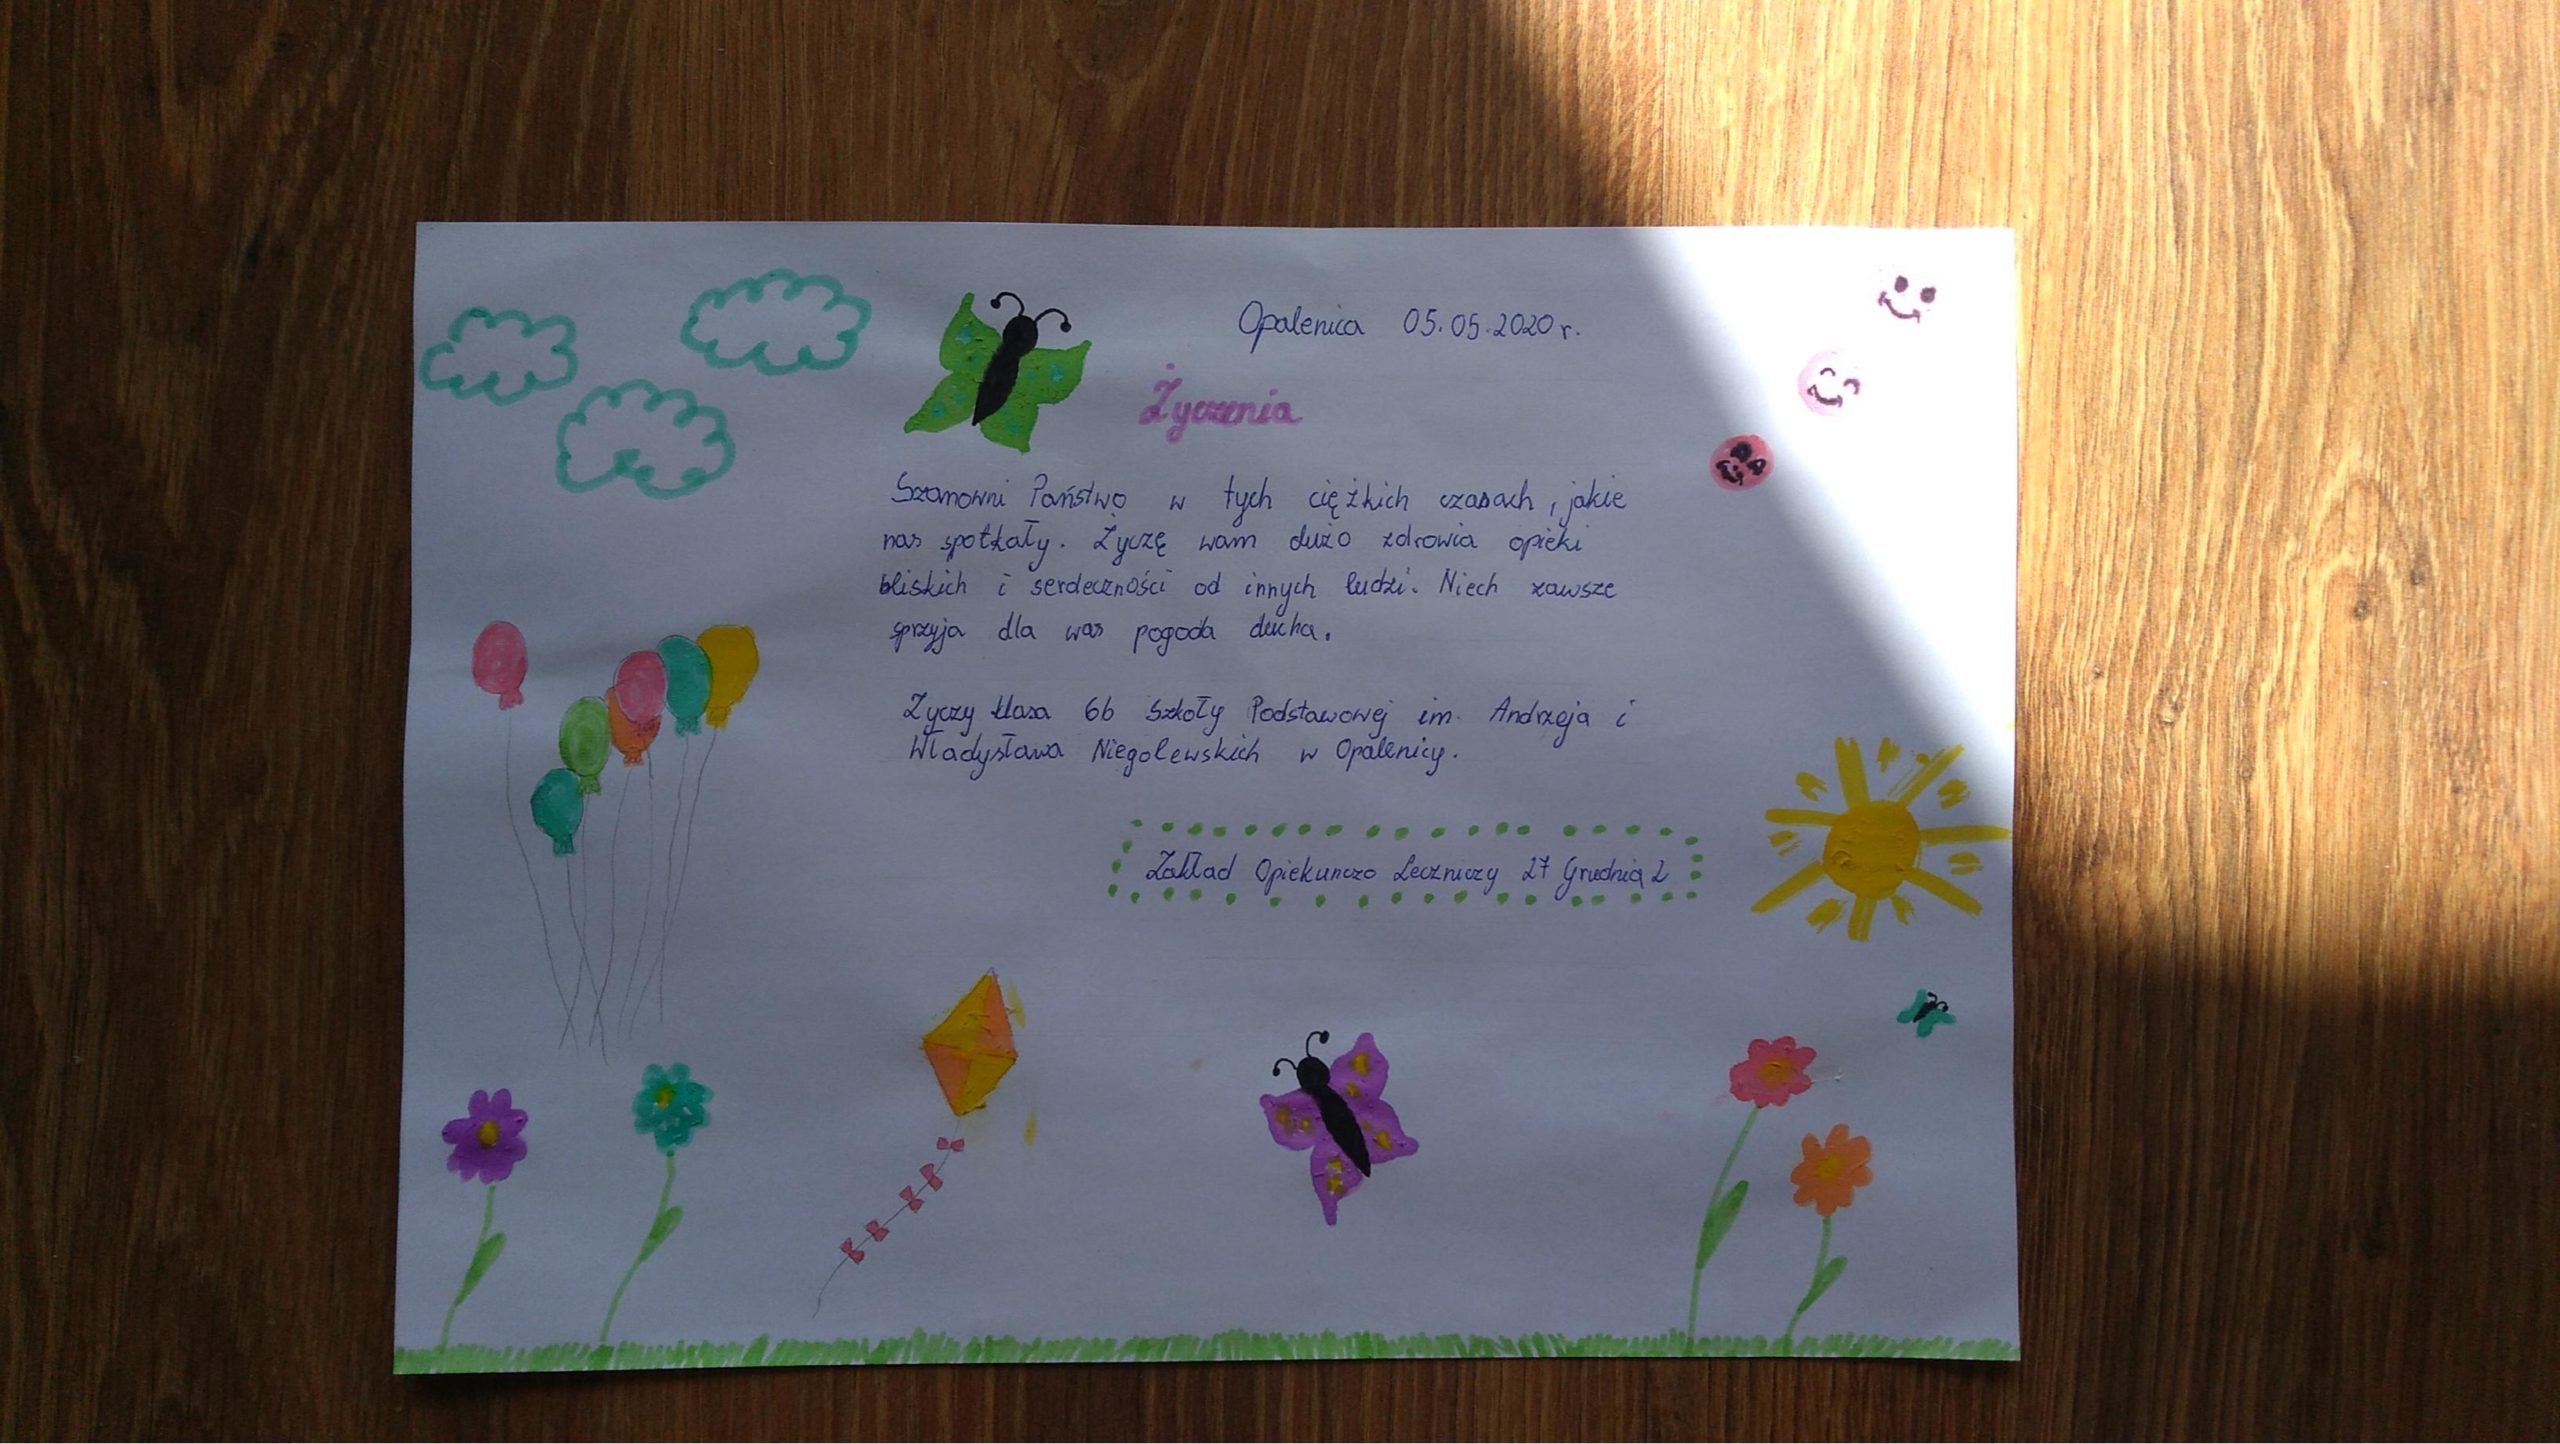 Opalenica 05.05.2020 r.
Życzenia
Szanowni Państwo w tych ciężkich czasach, jakie
nas spotkały. Życzę wam dużo zdrowia opieki
bliskich i serdeczności od innych ludzi. Niech zawsze
sprzyja dla was pogoda ducha.
Życzy klasa 6b Szkoły Podstawowej im. Andrzeja i
Władysława Niegolewskich w Opalenicy.
Zakład Opiekunczo Leczniczy 27 Grudnia 2